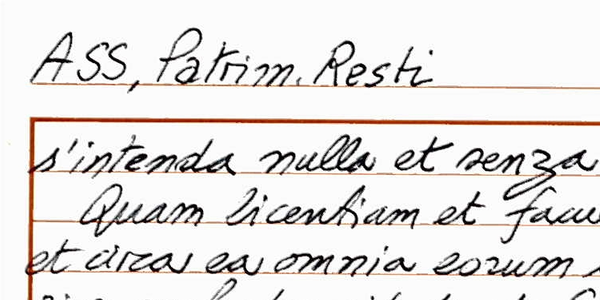 ASS, Patrim. Resti
s'intenda nulla et senza
Quam licentiam et facu
et circa ea omnia eorum